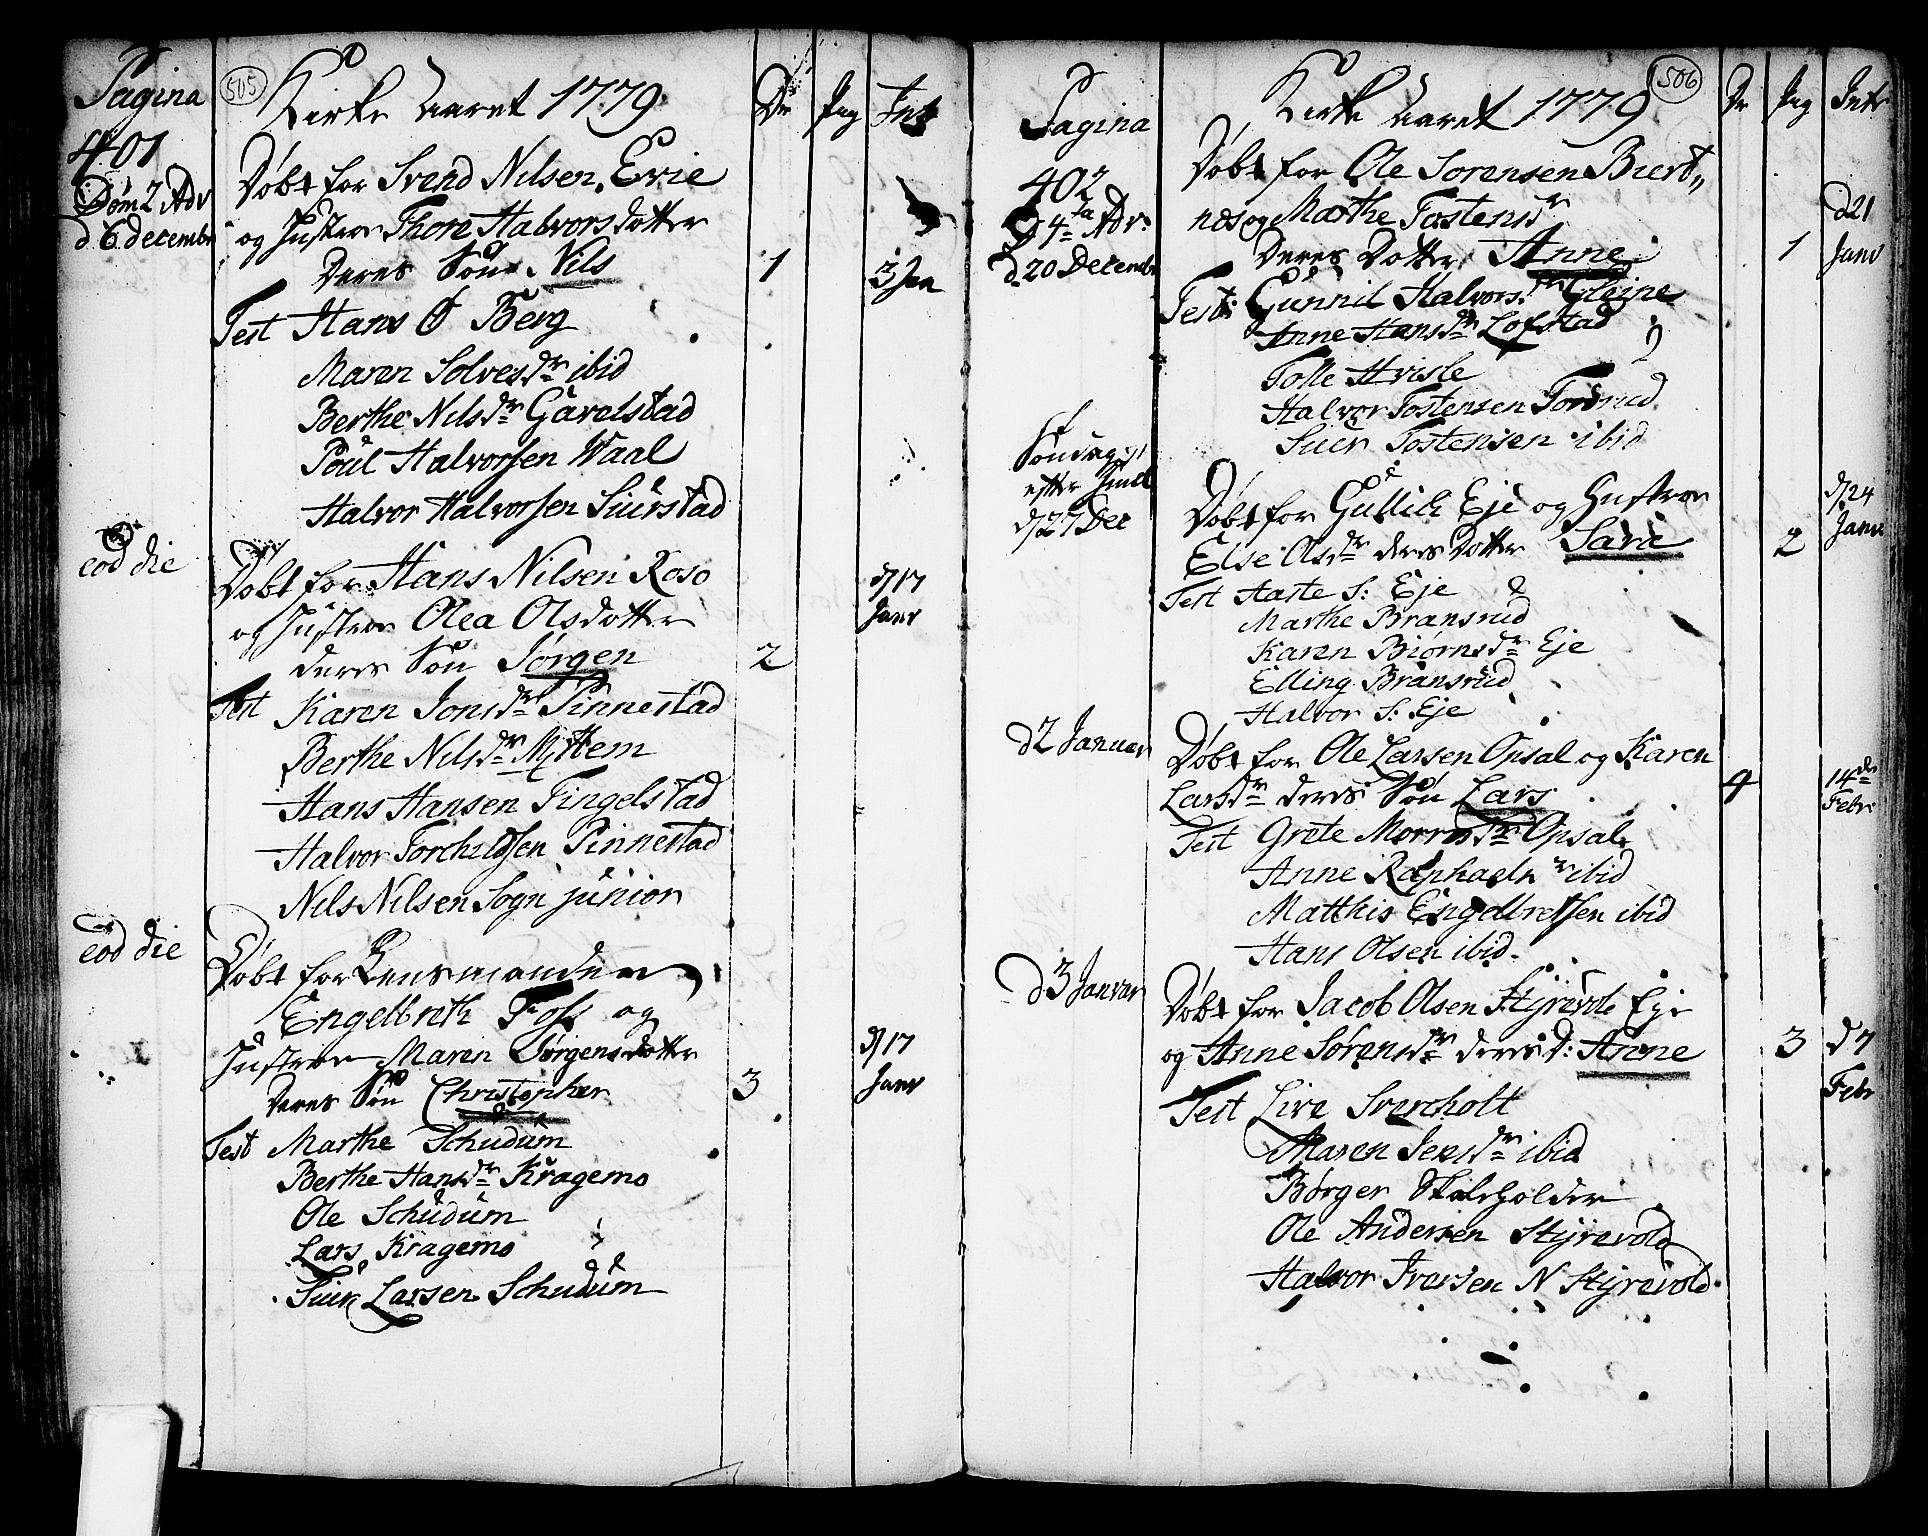 Pagina
401
Dom 2 Adv
d 6 decembr
505
Kirke Aaret 1779
Dr
Pig
Int
Døbt for Svend Nilsen Evie
og Hustroe Thore Halvorsdotter
Deres Søn Nils
1
3 Jan
Test Hans O Berg
Maren Solvesdr ibid
Berthe Nilsdr Gavelstad
Poul Halvorsen Waal
Halvor Halvorsen Siurstad
eod die
Døbt for Hans Nilsen Roso
og Hustroe Olea Olsdotter
deres Søn Jørgen
2
d 17
Janv
Test Karen Jonsdr Pinnestad
Berthe Nilsdr Mittem
Hans Hansen Tingelstad
Halvor Torchildsen Pinnestad
Nils Nilsen Sogn junior
eod die
Døbt for Lensmanden
Engelbreth Foss og
Hustroe Maren Jørgensdotter
Deres Søn Christopher
3
d 17
Janv
Test Marthe Schudum
Berthe Hansdr Kragemo
Ole Schudum
Lars Kragemo
Siur Larsen Schudum
Pagina
402
D 4ta Adv:
d 20 Decembr
506
Kirke Aaret 1779
Dr
Pig
Intr
Døbt for Ole Sorensen Biert„
næs og Marthe Tostensdr
Deres Dotter Anne
1
d 21
Janv
Test: Gunnil Halvorsdr Gleine
Anne Hansdr Lofstad
Tolle Hvisle
Halvor Tostensen Fordrud
Siuer Tostensen ibid
Søndag
efter Juul
d 27 Dec
Døbt for Gullich Eje og Hustroe
Else Olsdr deres Dotter Sara
2
d 24
Janv
Test Aaste S: Eje
Marthe Bransrud
Karen Biørnsdr Eje
Elling Bransrud
Halvor S: Eje
d 2 Januar
Døbt for Ole Larsen Opsal og Karen
Larsdr deres Søn Lars
4
14de
Febr
Test Grete Morrisdr Opsal
Anne Raphaelsdr ibid
Matthis Engelbretsen ibid
Hans Olsen ibid.
d 3 Januar
Døbt for Jacob Olsen Styrevold Eje
og Anne Sørensdr deres D: Anne
3
d 7
Febr
Test Live Svercholt
Maren Jensdr ibid
Børger Skoleholder
Ole Andersen Styrevold
Halvor Iversen N Styrevold